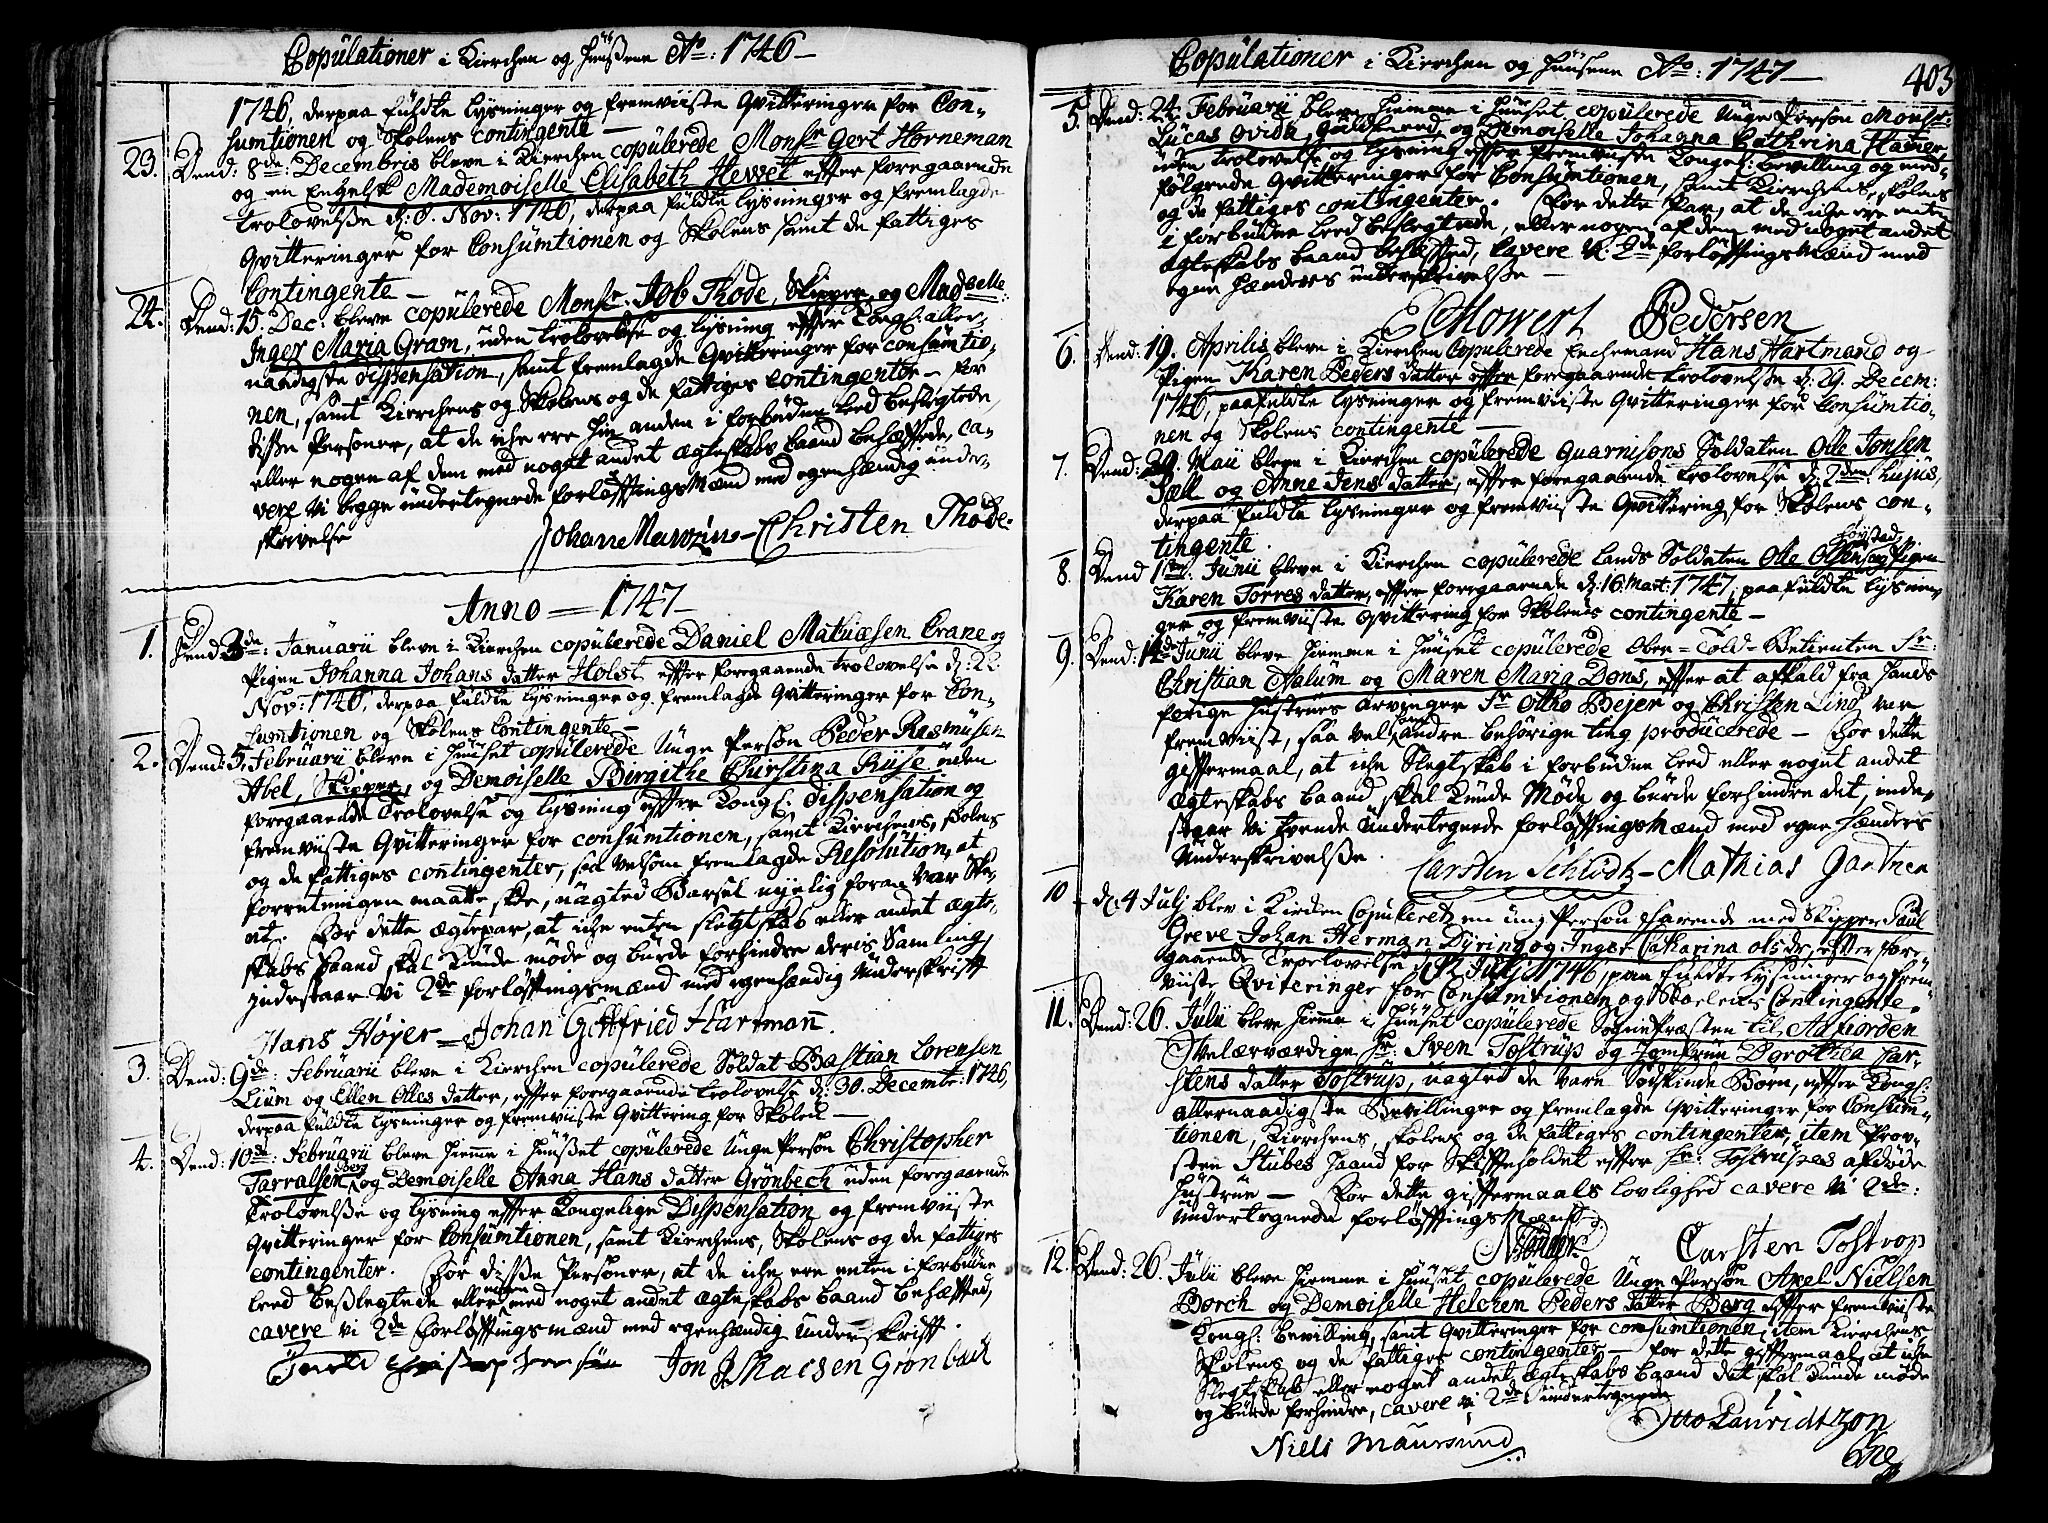 Copulationer i Kirchen og Huusene Ao: 1746 –
1746, derpaa fuldte Lysninger og fremviiste Qvitteringer for Con-
sumtionen og Skolens Contingente –
23. Dend: 8de: Decembris bleve i Kirchen copulerede Monsr Gert Horneman
og en Engelsk Mademoiselle Elisabeth Hewet efter foregaaende
trolovelse d: 8. Nov: 1746, derpaa fuldte Lysninger og fremlagde
Qvitteringer for Consumtionen og Skolens samt de fattiges
Contingente –
24. Dend: 15. Dec: bleve copulerede Monsr. Job Thode, Skipper, og Madselle:
Inger Maria Gram, uden trolovelse og Lysning efter Kongl: aller-
naadigste dispensation, samt fremlagde Qvitteringer for Consumtio-
nen, samt Kirchens og Skolens og de fattiges Contingenter – For
disse Personer, at de iche ere hin anden i forbuden Leed beslegtede,
eller nogen af dem med noget andet Ægteskabs baand behæftede, ca-
vere vi begge undertegnede forløftningsmænd med egenhændig under-
skrivelse
Johan – Christen Thode
Anno – 1747 –
1. Dend 3de: Januarii bleve i Kirchen copulerede Daniel Mathiæsen Crane og
Pigen Johanna Johans datter Holst efter foregaaende trolovelse d: 22
Nov: 1746, derpaa fuldte Lysninger og fremlagde Qvitteringer for Con-
sumtionen og Skolens Contingente –
2. Dend: 5. Februarii bleve i Huuset copulerede Unge Person Peder Rasmusen
Abel, Skipper, og Demoiselle Birgithe Christina Ruse uden
foregaaende Trolovelse og Lysning efter Kongl: Dispensation og
fremviiste Qvitteringer for Consumtionen, samt Kirchens, Skolens
og de fattiges contingenter, saa velsom fremlagde Resolution, at
forretningen maatte skee, uagted Barsel nyelig foran var ske-
et. For dette Ægtepar, at iche enten slegtskab eller andet Ægte-
skabs baand skal kunde møde og burde forhindre deris Samling,
indestaar vi 2de forløftningsmænd med egenhændig Underskrift
Hans Høyer – Johan Gottfried Hartman.
3. Dend: 9de: Februarii bleve i Kirchen copulerede Soldat Bastian Lorensen
Lium og Ellen Olles datter, efter foregaaende trolovelse d: 30. Decembr: 1746,
derpaa fuldte Lysninger og fremviiste Qvittering for Skolen –
4. Dend: 10de: Februarii bleve hieme i Huuset copulerede Unge Person Christopher
Tarralsen Berg og Demoiselle Anna Hans datter Grønbech uden foregaaende
Trolovelse og Lysning efter Kongelige Dispensation og fremviiste
Qvitteringer for Consumtionen, samt Kirchens, Skolens og de fattiges
contingenter. For disse Personer, at de iche ere enten i forbuden
Leed beslegtede eller nogen med noget andet Ægteskabs baand behæfted,
cavere vi 2de Forløftningsmænd med egenhændig Underskrift.
Jon Isaacsen Grønbach
Copulationer i Kirchen og Huusene Ao: 1747 – 403
5. Dend: 24 Februarii bleve hiemme i Huuset copulerede Unge Person Monsr:
Lucas Ovidh, Guldsmed og Demoiselle Johanna Cathrina Hamer
uden trolovelse og Lysning efter fremviiste Kongel: bevilling og med-
følgende Qvitteringer for Consumtionen, samt Kirchens, Skolens
og de fattiges contingenter. For dette Par, at de iche ere enten
i forbuden Leed beslegtede, eller nogen af dem med noget andet
Ægteskabs baand behæfted, Cavere vi 2de forløftningsmænd med
egne hænders underskrivelse –
E Mowert Pedersen
6. Dend: 19. Aprilis bleve i Kirchen Copulerede Enchemand Hans Hartmand og
Pigen Karen Peders datter efter foregaaende trolovelse d: 29. Decem:
1746, paafuldte Lysninger og fremviiste Qvitteringer for Consumtio-
nen og Skolens contingente –
7. Dend: 29. Maii bleve i Kirchen copulerede Guarnisons Soldaten Olle Jonsen
Sæll og Anne Jens datter, efter foregaaende trolovelse den 2den hujus,
derpaa fuldte Lysninger og fremviiste Qvittering for Skolens con-
tingente.
8. Dend 1ste: Junii bleve i Kirchen copulerede Lands Soldaten Olle Olsen Høvstad og Pigen
Karen Torres datter, efter foregaaende d: 16 Mart: 1747, paafuldte Lysnin-
ger og fremviiste Qvittering for Skolens contingente –
9. Dend: 14de Junii bleve hiemme i Huuset copulerede Ober-Told-Betienten Sr:
Christian Aalum og Maren Maria Dons, efter at afkald fra hands
forige Hustrues Arvinger Sr Otho Bejer og Christen Lind var
fremviist, saa vel som andre behørige ting producerede – For dette
giftermaal, at iche Slegtskab i forbudne Leed eller noget andet
Ægteskabs baand skal kunde møde og burde forhindre det, inde-
staar vi tvende undertegnede forløftningsmænd med egne hænders
Underskrivelse.
Carsten Schiødtz – Mathias Gardner
10 d: 4 Julj blev i Kirchen Copuleret en ung Person farende med Skipper Paul
Greve Johan Herman Dyring og Inger Catharina Olsdr, efter fore-
gaaende Trolovelse d: 12 Julj 1746, paa fuldte Lysninger og frem-
viiste Qviteringer for Consumtionen og Skolens Contingente.
11. Dend: 26. Julii bleve hiemme i Huuset copulerede Sogne Præsten til Aafiorden
Velærværdige Hr: Sven Tostrup og Jomfrue Dorothea Car-
stens datter Tostrup, uagted de vare Sødskinde Børn, efter Kongl:
allernaadigste Bevillinger og fremlagde Qvitteringer for Consum-
tionen, Kirchens, Skolens og de fattiges contingenter, item Prov-
sten Stubes haand for Skifteholdet efter Hr: Tostrupes afdøde
Hustrue – For dette giftermaals lovlighed cavere vi 2de:
undertegnede forløftningsmænd.
Carsten Tostrop
12. Dend: 26. Julii bleve hiemme i Huuset copulerede Unge Person Axel Nielsen
Borch og Demoiselle Helchen Peders datter Berg efter fremviiste
Kongl: bevilling, samt Qvitteringer for consumtionen, item Kirchens,
Skolens og de fattiges contingenter – for dette giftermaal, at iche
Slegtskab eller noget andet Ægteskabs baand det skal kunde møde
og burde forhindre, cavere vi 2de undertegnede
Otto Lauridtzon
Niels Maursund